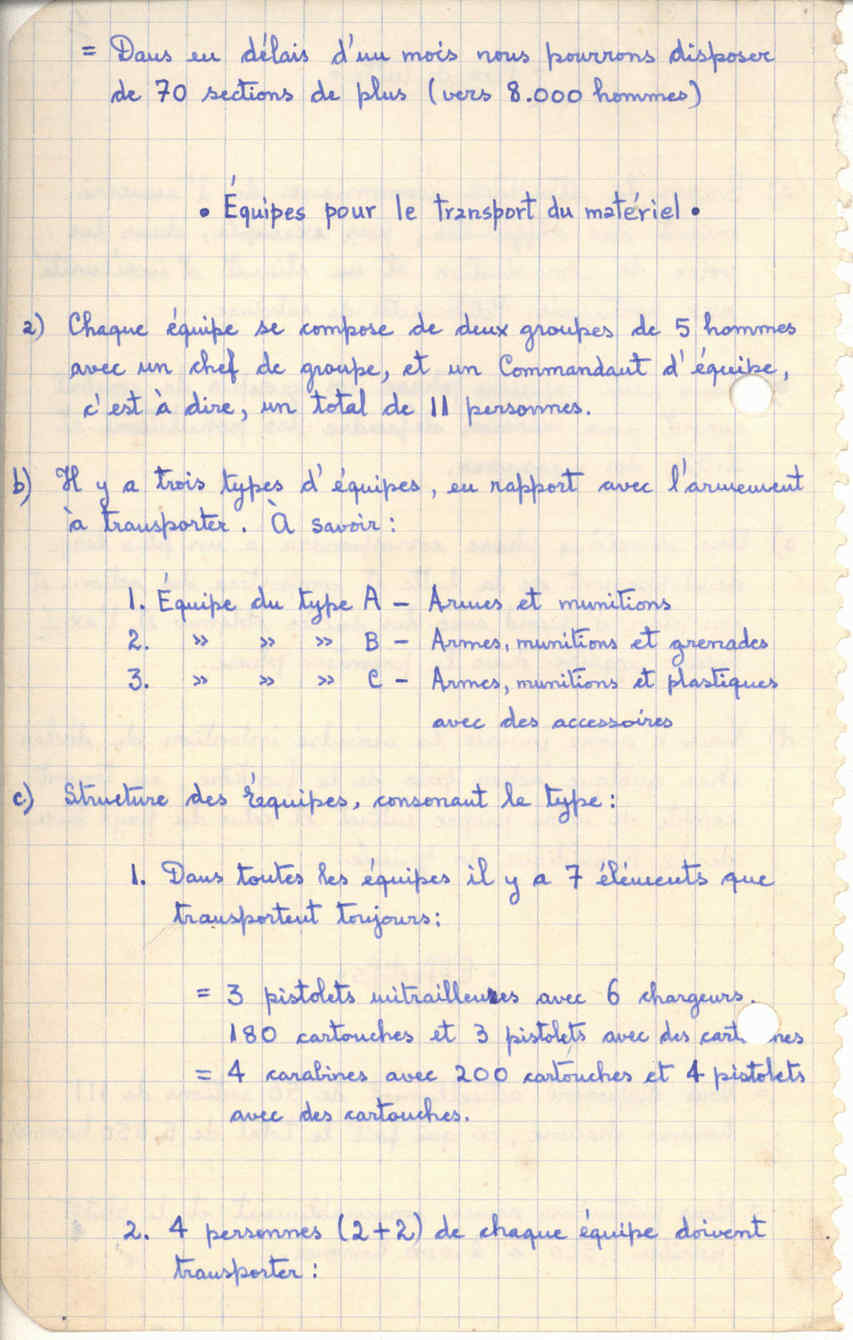 = Dans en délais d'un mois nous pourrons disposer
de 70 sections de plus (vers 8.000 hommes)
• Équipes pour le transport du matériel •
a) Chaque équipe se compose de deux groupes de 5 hommes
avec un chef de groupe, et un Commandant d'équipe,
c'est à dire, un total de 11 personnes.
b) Il y a trois types d'équipes, en rapport avec l'armement
à transporter. À savoir:
1. Équipe du type A - Armes et munitions
2. » » » B - Armes, munitions et grenades
3. » » » C - Armes, munitions et plastiques
avec des accessoires
c) Structure des équipes, consonant le type:
1. Dans toutes les équipes il y a 7 éléments que
transportent toujours:
= 3 pistolets mitrailleures avec 6 chargeurs.
180 cartouches et 3 pistolets avec des
= 4 carabines avec 200 cartouches et 4 pistolets
avec des cartouches.
2. 4 personnes (2+2) de chaque équipe doivent
transporter: